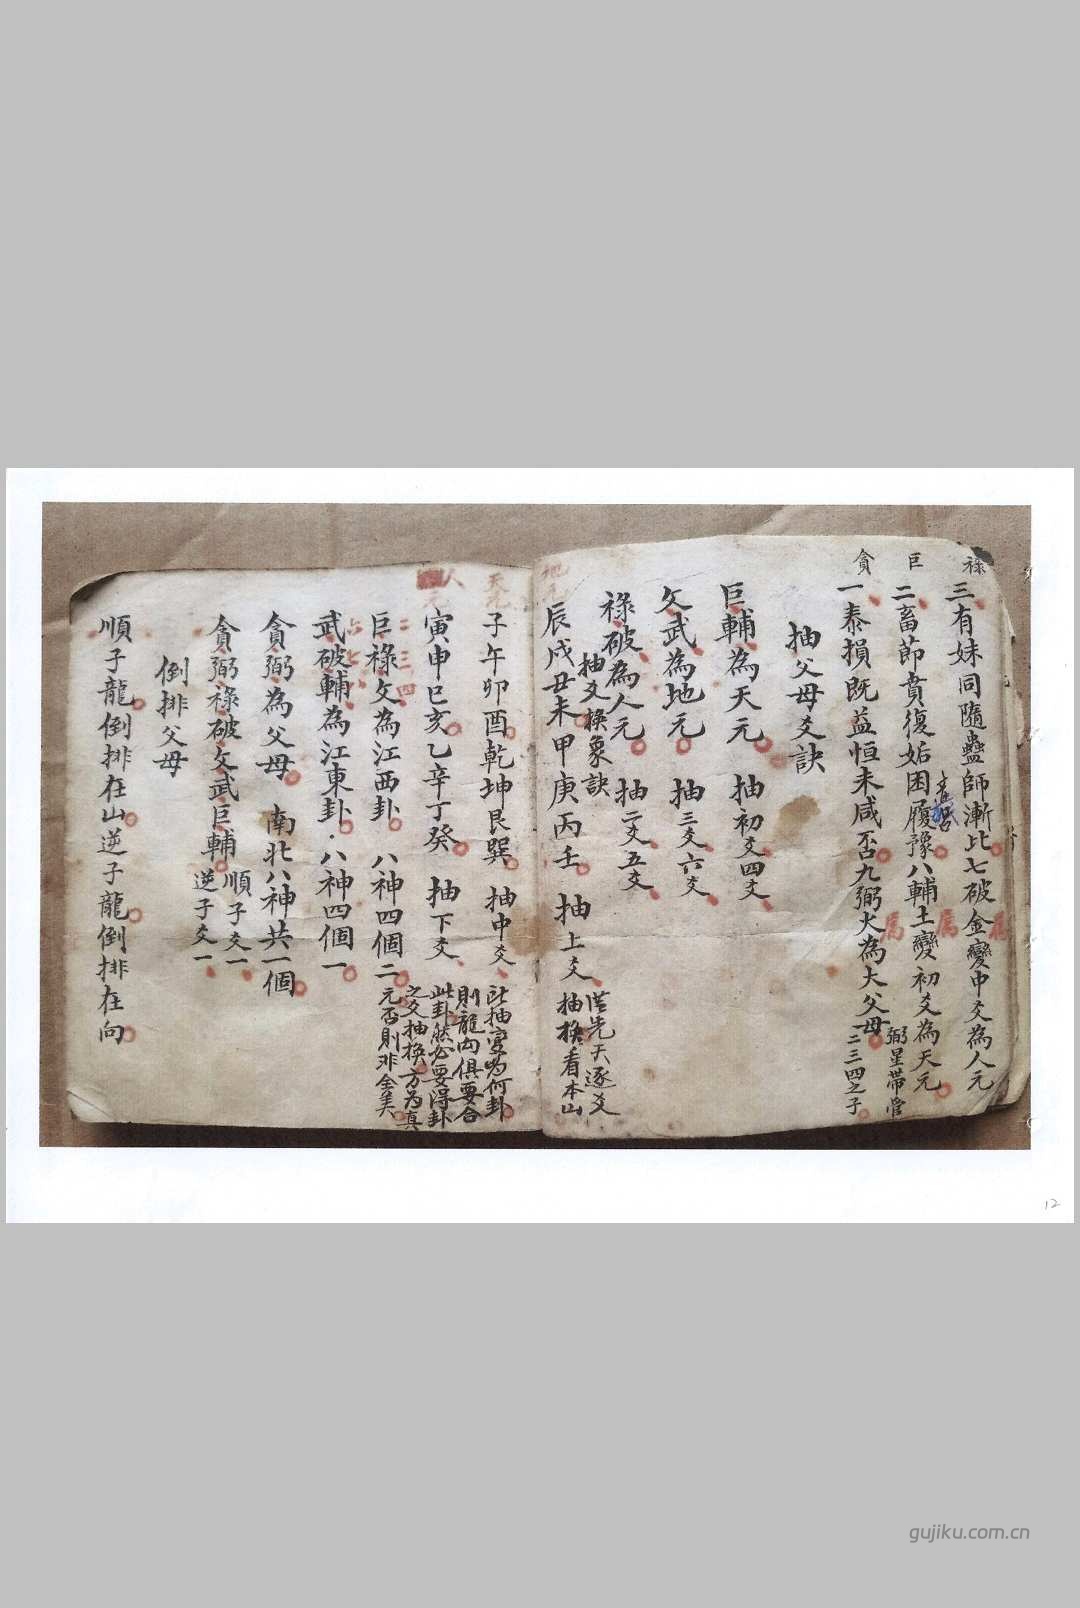 祿
三有妹同隨蠱師漸比七破金變中爻為人元
巨
二畜節賁復姤困履豫八輔土變初爻為天元
貪
一泰損既益恒未咸否九弼火為大父母
弼星帶管
二三四之子
為
為
為
抽父母爻訣
巨輔為天元 抽初爻四爻
文武為地元 抽三爻六爻
祿破為人元 抽二爻五爻
抽爻換象訣
地元
辰戌丑未甲庚丙壬 抽上爻
從先天逐爻
抽換看本山
天元
子午卯酉乾坤艮巽 抽中爻
此抽變為何卦
則龍向俱要合
人元
寅申巳亥乙辛丁癸 抽下爻
此卦然必要得卦
之爻抽換方為真
元否則非全美
二三四
巨祿文為江西卦 八神四個二
六七八
武破輔為江東卦 八神四個一
貪弼為父母 南北八神共一個
貪弼祿破文武巨輔 順子爻一
逆子爻一
倒排父母
順子龍倒排在山逆子龍倒排在向
12
gujiku.com.cn